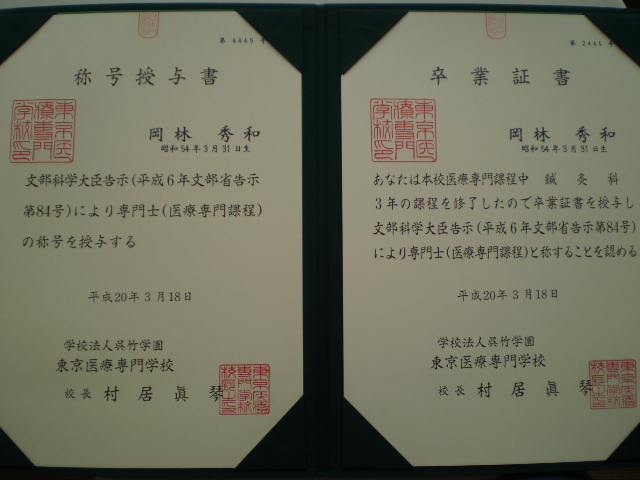 第 4445 号
称号授与書
岡林 秀和
昭和54年3月31日生
文部科学大臣告示(平成6年文部省告示
第84号)により専門士(医療専門課程)
の称号を授与する
平成20年3月18日
学校法人呉竹学園
東京医療専門学校
校長 村居眞琴
第 2445 号
卒業証書
岡林 秀和
昭和54年3月31日生
あなたは本校医療専門課程中 鍼灸科
3年の課程を修了したので卒業証書を授与し
文部科学大臣告示(平成6年文部省告示第84号)
により専門士(医療専門課程)と称することを認める
平成20年3月18日
学校法人呉竹学園
東京医療専門学校
校長 村居眞琴